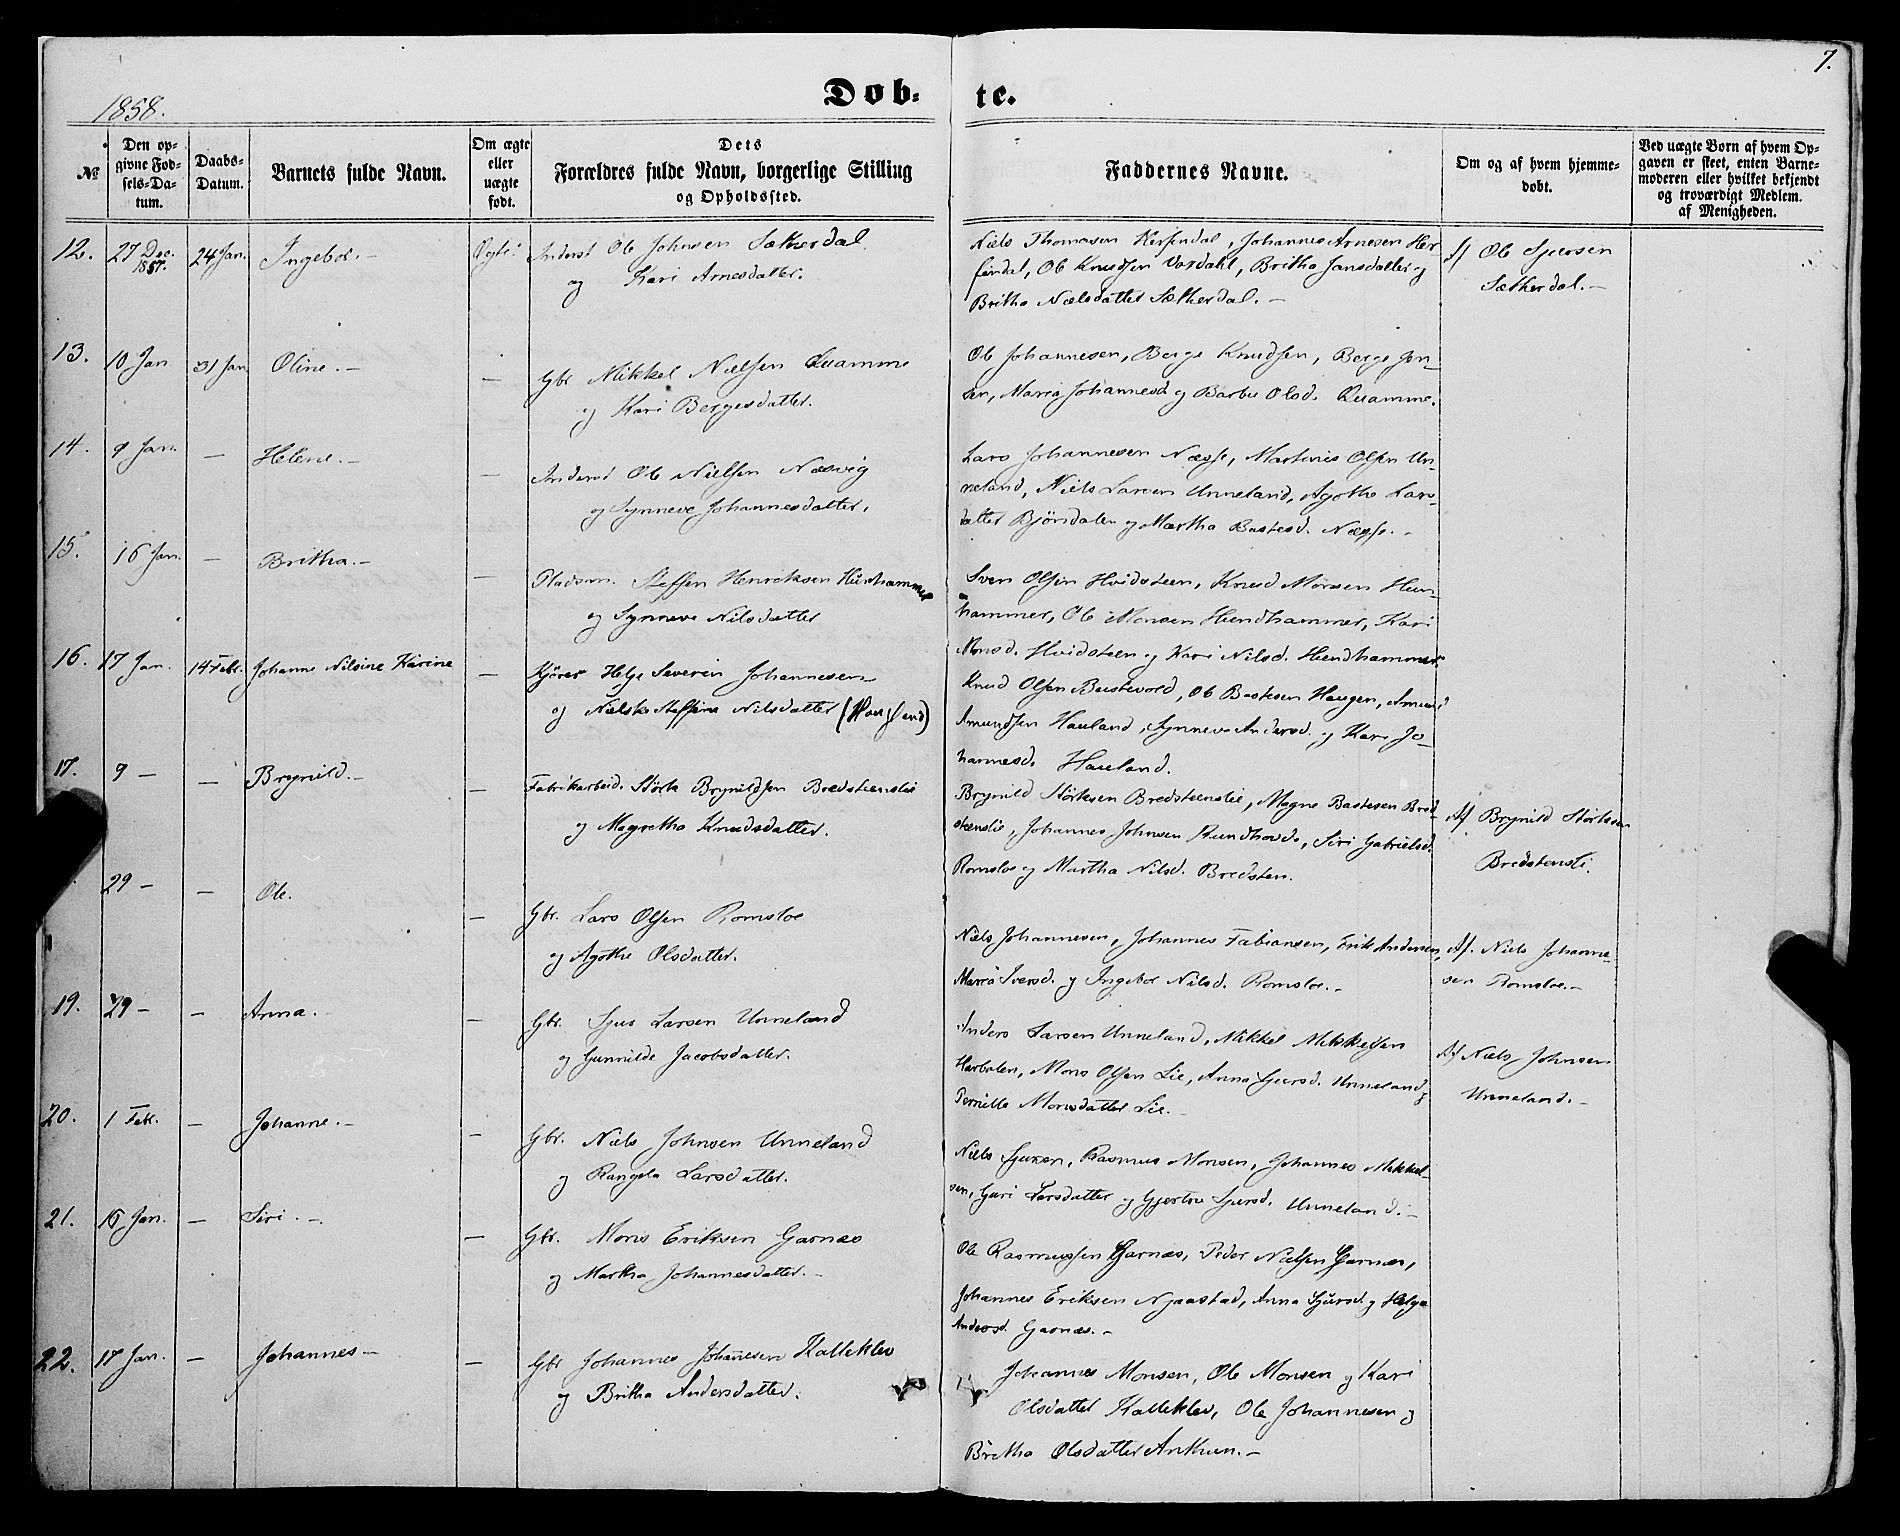 7.
1858.
Døb- te.
№
Den op-
givne Fød-
sels-Da-
tum.
Daabs-
Datum.
Barnets fulde Navn.
Om ægte
eller
uægte
født.
Dets
Forældres fulde Navn, borgerlige Stilling
og Opholdssted.
Faddernes Navne.
Om og af hvem hjemme-
døbt.
Ved uægte Børn af hvem Op-
gaven er skeet, enten Barne-
moderen eller hvilket bekjendt
og troværdigt Medlem
af Menigheden.
12. 27 Dec. 1857. 24 Jan. Ingebor. Ægte. Inderst Ole Johnsen Sætherdal
og Kari Arnesdatter.
Niels Thomasen Herfindal, Johannes Arnesen Her
findal, Ole Knudsen Vardahl, Britha Jansdatter og
Britha Nielsdatter Sætherdal. —
Af Ole Sjursen
Sætherdal. —
13. 10 Jan. 31 Jan. Oline. — — Gbr Mikkel Nielsen Quamme
og Kari Bergesdatter.
Ole Johannesen, Berge Knudsen, Berge Jen-
sen, Maria Johannesd. og Barbu Olsd. Quamme.
14. 9 Jan. — Helene. — — Inderst Ole Nielsen Næsvig
og Synneve Johannesdatter.
Lars Johannesen Næsse, Martinus Olsen Un-
neland, Niels Larsen Unneland, Agothe Lars-
datter Bjørndalen og Martha Bastesd. Næsse. —
15. 16 Jan. — Britha. — — Pladsm. Steffen Henriksen Hundhammer
og Synneve Nilsdatter
Sven Olsen Hvidsteen, Knud Monsen Hun-
hammer, Ole Monsen Hundhammer, Kari
Monsd. Hvidsteen og Kari Nilsd. Hundhammer.
16. 17 Jan. 14 Febr. Johanne Nilsine Karine — Kjører Helge Severin Johannesen
og Nielske Steffine Nilsdatter (Hougland)
Knud Olsen Bustevold, Ole Bastesen Haugen, Amund
Amundsen Hauland, Synneve Andersd. og Kari Jo-
hannesd. Hauland.
17. 9 — — Brynild. — — Fabrikarbeid. Størk Brynildsen Bredsteenslie
og Magretha Knudsdatter.
Brynild Størksen Bredsteenslie, Magne Bastesen Bred-
steenslie, Johannes Johnsen Rundhovde, Siri Gabrielsd.
Romsloe og Martha Nilsd. Bredsten.
Af Brynild Størksen
Bredstensli.
29 — — Ole. — Gbr. Lars Olsen Romsloe
og Agothe Olsdatter.
Niels Johannesen, Johannes Fabiansen, Erik Andersen,
Maria Iversd. og Ingebor Nilsd. Romsloe. —
Af. Niels Johanne-
sen Romsloe. —
19. 29 — — Anna. — — Gbr. Sjur Larsen Unneland
og Gunnilde Jacobsdatter.
Anders Larsen Unneland, Mikkel Mikkelsen
Harbolen, Mons Olsen Lie, Anna Sjursd. Unneland og
Pernille Monsdatter Lie. —
Af Niels Johnsen
Unneland. —
20. 1 Febr. — Johanne. — — Gbr. Niels Johnsen Unneland
og Rangela Larsdatter.
Niels Sjursen, Rasmus Monsen, Johannes Mikkel-
sen, Guri Larsdatter og Gjertru Sjursd. Unneland. —
21. 15 Jan. — Siri. — — Gbr. Mons Eriksen Garnæs
og Martha Johannesdatter. —
Ole Rasmussen Garnæs, Peder Nielsen Garnæs,
Johannes Eriksen Njaastad, Anna Sjursd. og Helga
Andersd. Garnæs. —
22. 17 Jan. — Johannes — — Gbr Johannes Johannesen Kalleklev
og Britha Andersdatter.
Johannes Monsen, Ole Monsen og Kari
Olsdatter Kalleklev, Ole Johannesen og
Britha Olsdatter Arthun. —